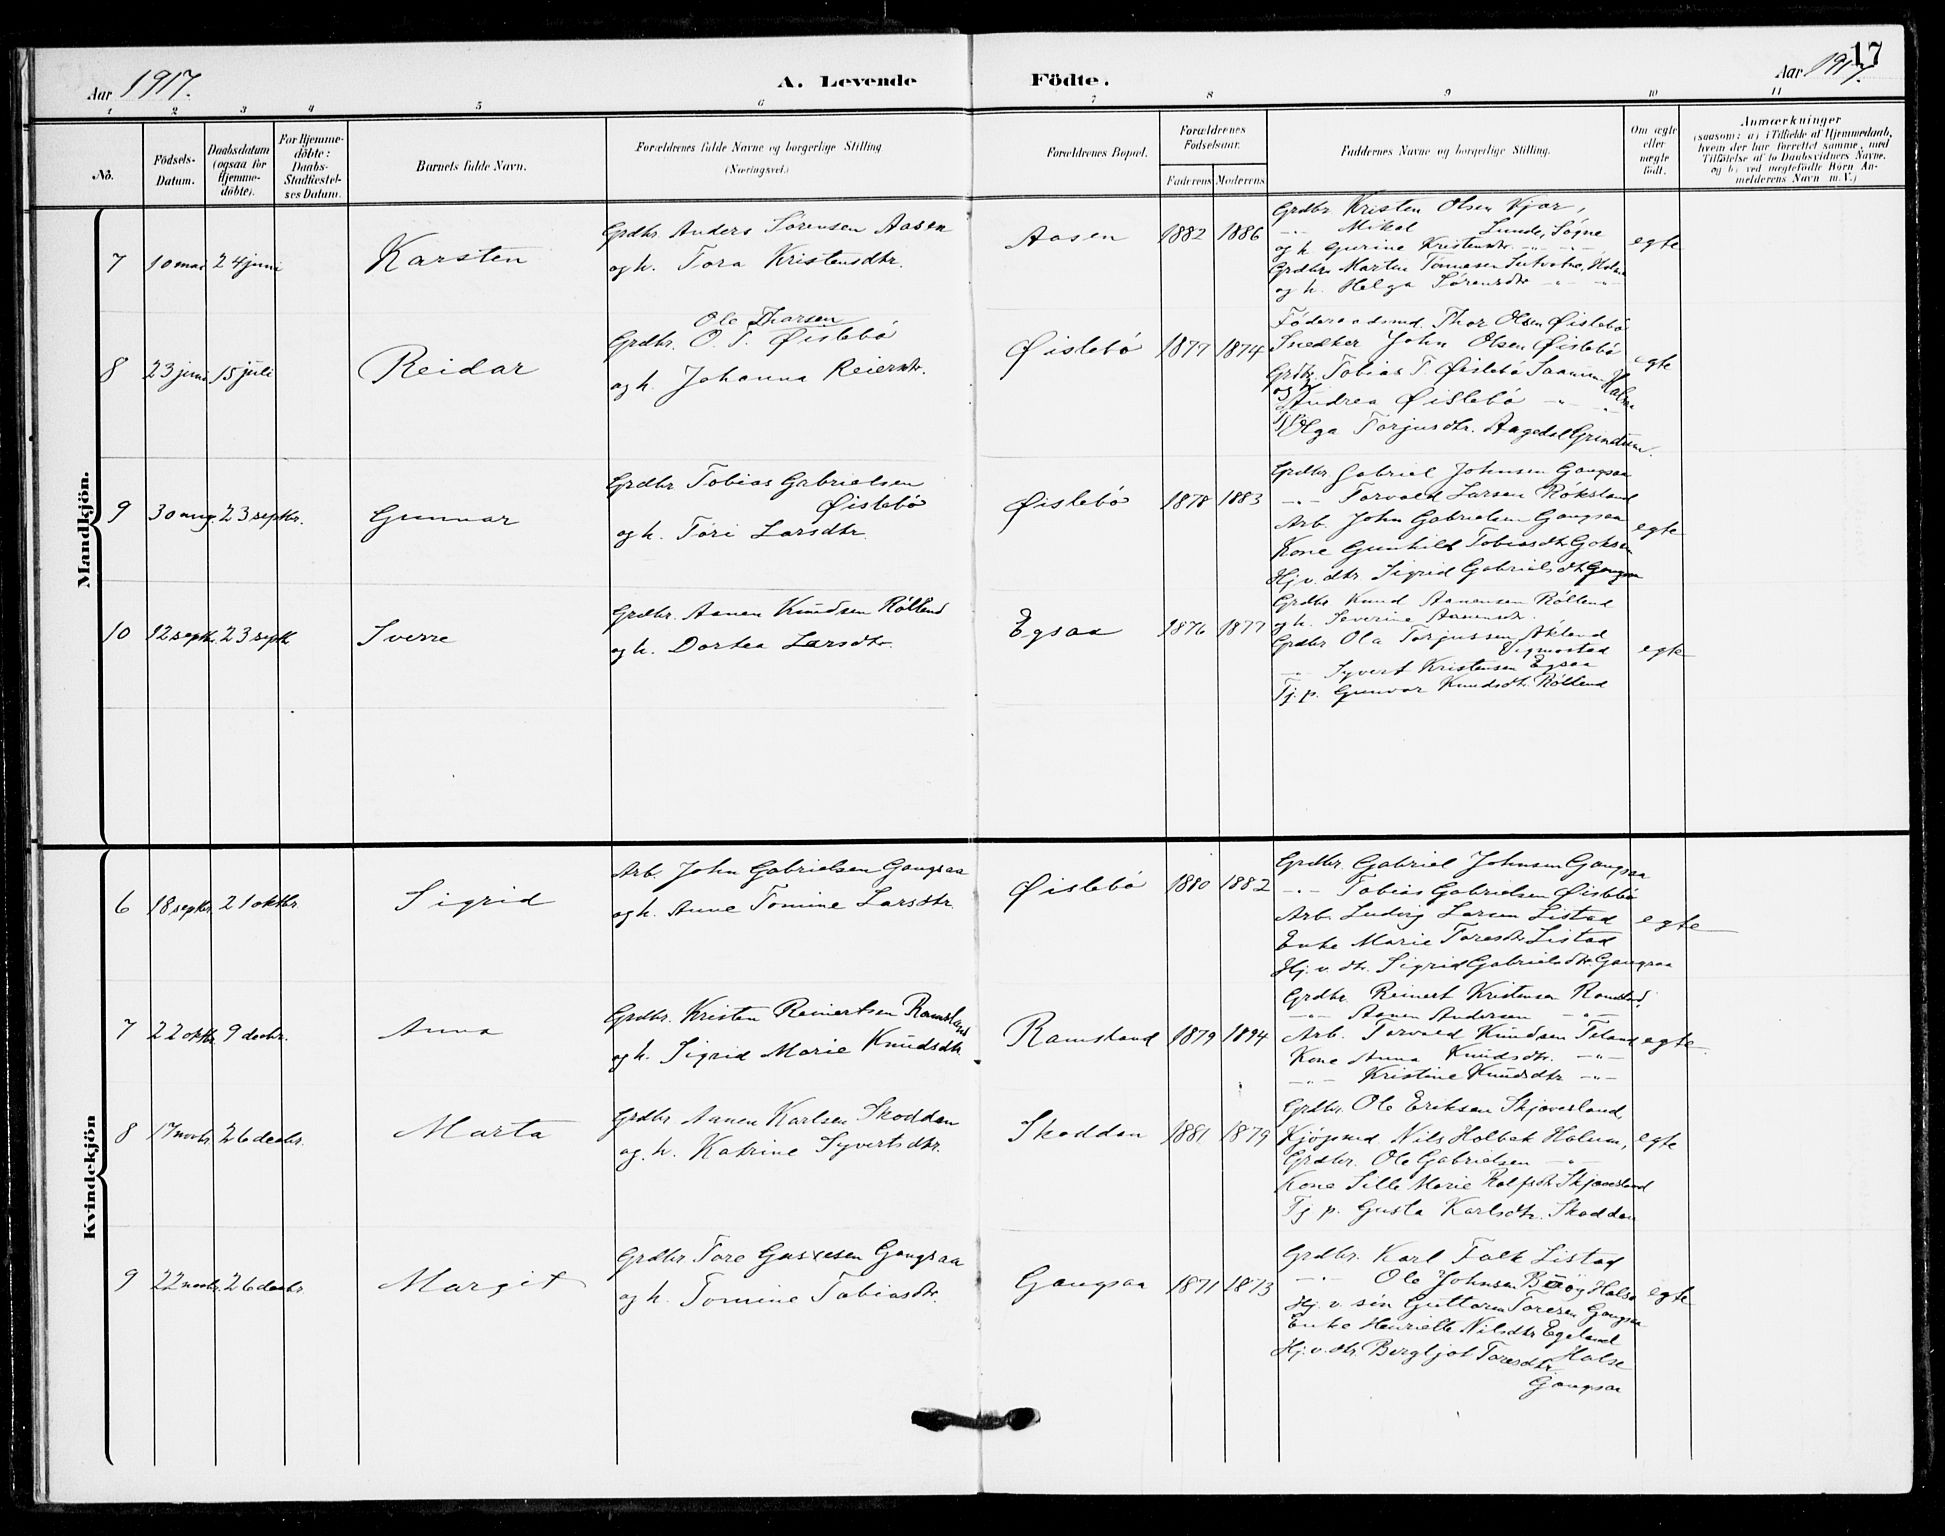 17
Aar 1917.
A. Levende
Födte.
Aar 1917.
1 2 3 4 5 6 7 8 9 10 11
No.
Födsels-
Datum.
Daabsdatum
(ogsaa for
Hjemme-
döbte).
For Hjemme-
döbte:
Daabs-
Stadfæstel-
ses Datum.
Barnets fulde Navn.
Forældrenes fulde Navne og borgerlige Stilling
(Næringsvei.)
Forældrenes Bopæl.
Forældrenes
Fødselsaar.
Faderens
Moderens
Faddernes Navne og borgerlige Stilling.
Om ægte
eller
uægte
født.
Anmærkninger
(saasom: a) i Tilfælde af Hjemmedaab,
hvem der har forrettet samme, med
Tilföielse af to Daabsvidners Navne,
og b) ved uægtefödte Börn An-
melderens Navn m. V.)
Mandkjön.
7 10 mai 24 juni Karsten
Grdbr. Anders Sørensen Aasen
og h. Tora Kristensdtr.
Aasen 1882 1886
Grdbr. Kristen Olsen Kjær,
-"- Mikal Lunde, Søgne
og h. Gurine Kristensdtr. -"- -"-
Grdbr. Martin Tønnesen
og h. Helga Sørensdtr. -"- -"-
egte
8 23 juni 15 juli Reidar
Ole Thorsen
Grdbr. O. T. Øislebø
og h. Johanna Reiersdtr.
Øislebø 1877 1874
Føderaadsmd. Thor Olsen Øislebø
Snedker John Olsen Øislebø
Grdbr. Tobias T. Øislebø
og h. Andrea Øislebø -"- -"-
Olga Torjusdtr. Aagedal Grindum.
egte
9 30 aug. 23 septbr. Gunnar
Grdbr. Tobias Gabrielsen
Øislebø
og h. Tori Larsdtr.
Øislebø 1878 1883
Grdbr. Gabriel Johnsen Gangsaa
-"- Torvald Larsen Røksland
Arb. John Gabrielsen Gangsaa
Kone Gunhild Tobiasdtr.
Hj. v. dtr. Sigrid Gabrielsdtr. Gangsaa
egte
10 12 septbr. 23 septbr. Sverre
Grdbr. Aanen Knudsen Røllend
og h. Dortea Larsdtr.
Egsaa 1876 1877
Grdbr. Knud Aanensen Røllend
og h. Severine Aanensdtr.
Grdbr. Ola Torjussen Høiland
Vigmostad
-"- Syvert Kristensen Egsaa
Tj. p. Gunvor Knudsdtr. Røllend
egte
Kvindekjön
6 18 septbr. 21 oktbr. Sigrid
Arb. John Gabrielsen Gangsaa
og h. Anne Tomine Larsdtr.
Øislebø 1880 1882
Grdbr. Gabriel Johnsen Gangsaa
-"- Tobias Gabrielsen Øislebø
Arb. Ludvig Larsen Listad
Enke Marie Toresdtr. Listad
Hj. v. dtr. Sigrid Gabrielsdtr. Gangsaa
egte
7 22 oktbr. 9 decbr. Anna
Grdbr. Kristen Reinertsen Ramsland
og h. Sigrid Marie Knudsdtr.
Ramsland 1879 1894
Grdbr. Reinert Kristensen Ramsland
-"- Aanen Andersen -"-
Arb. Torvald Knudsen Foland
Kone Anna Knudsdtr. -"-
-"- Kristine Knudsdtr. -"-
egte.
8 17 novbr. 26 decbr. Marta
Grdbr. Aanen Karlsen Skoddan
og h. Katrine Syvertsdtr.
Skoddan 1881 1879
Grdbr. Ole Eriksen Skjævesland,
Kjøpmd Nils Holbæk Holum,
Grdbr. Ole Gabrielsen -"-
Kone Sille Marie Rolfsdtr. Skjævesland
Tj. p. Gusta Karlsdtr. Skoddan
egte
9 22 novbr. 26 decbr. Margit
Grdbr. Tore Gussesen Gangsaa
og h. Tomine Tobiasdtr.
Gangsaa 1871 1873
Grdbr. Karl Falk Listad
-"- Ole Johnsen Halse
Hj. v. søn Guttorm Toresen Gangsaa
Enke Henriette Nilsdtr. Egeland
Halse
Hj. v. dtr. Bergljot Toresdtr.
Gangsaa
egte